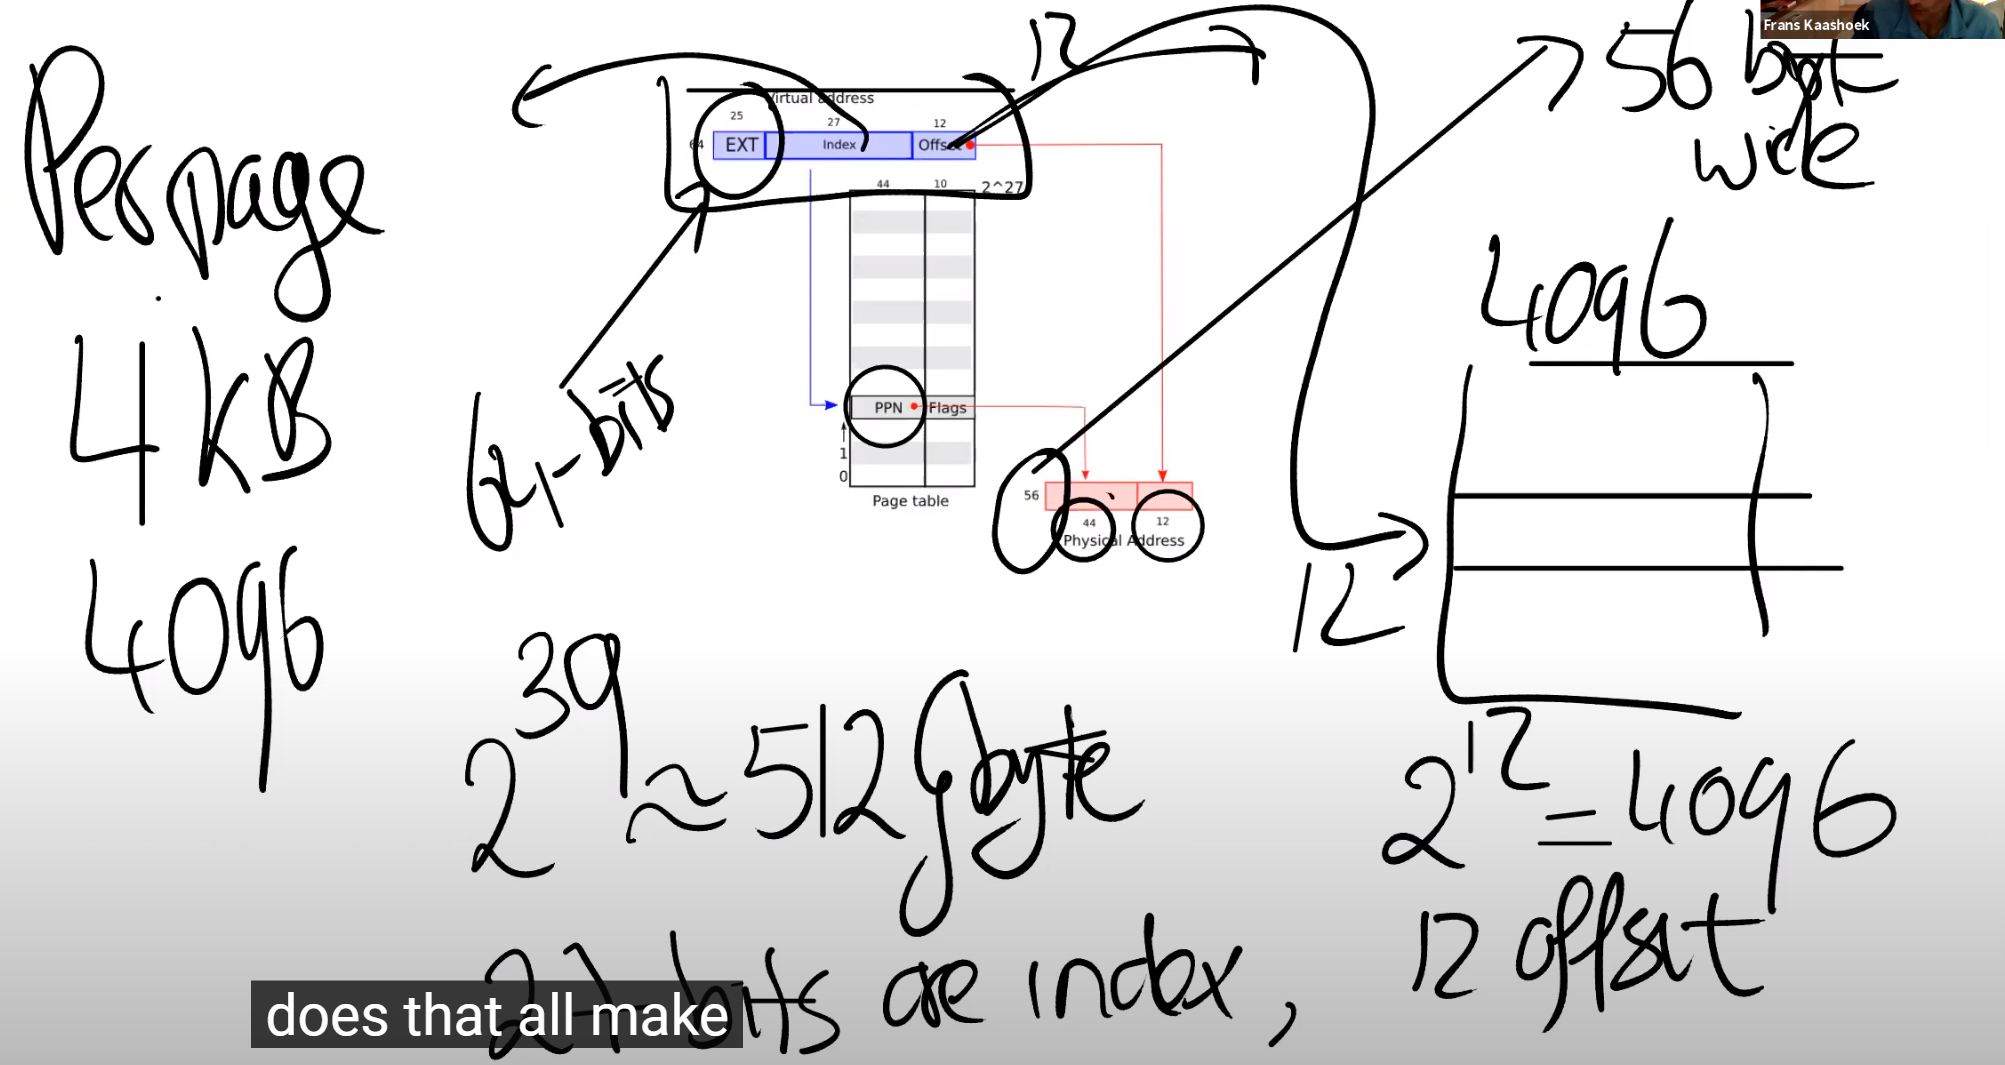 Frans Kaashoek
Per page
4 KB
4096
Virtual address
25
27
12
64
EXT
Index
Offset
12
44
10
2^27
PPN
Flags
1
0
Page table
56
44
12
Physical Address
64-bits
56
wide
4096
12
2^39 ≈ 512 gbyte
2^12 = 4096
27 bits are index, 12 offset
does that all make